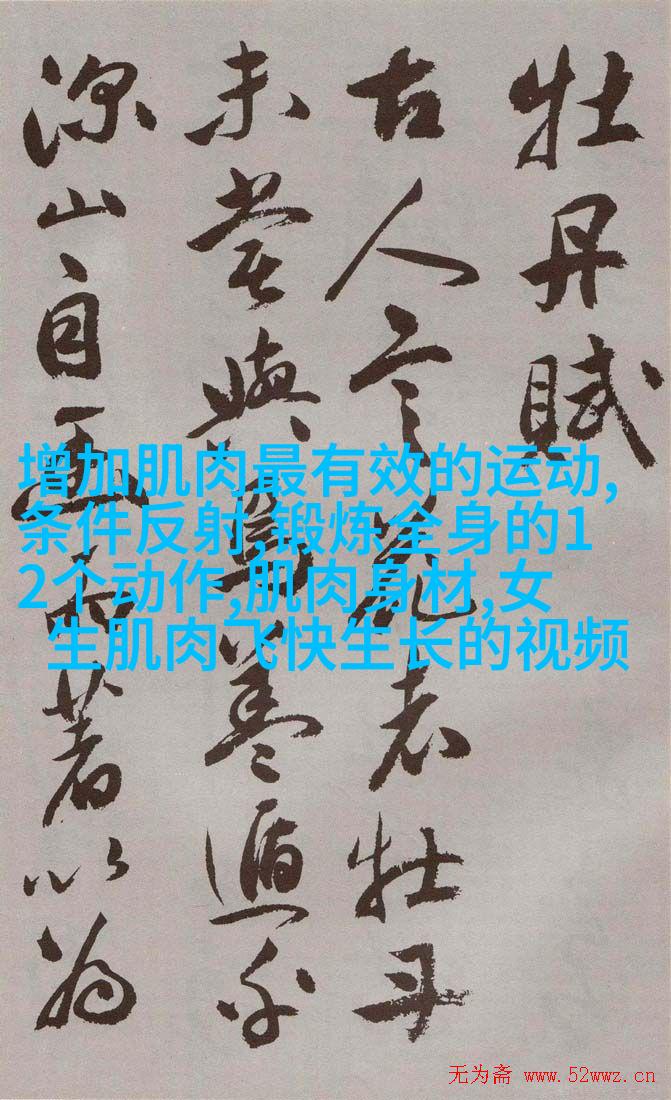 牡丹賦
古人言花者牡丹
未嘗與焉蓋遁
深山自幽而著以為
增加肌肉最有效的运动,
条件反射,锻炼全身的1
2个动作,肌肉身材,女
生肌肉飞快生长的视频
无为斋 www.52wwz.cn